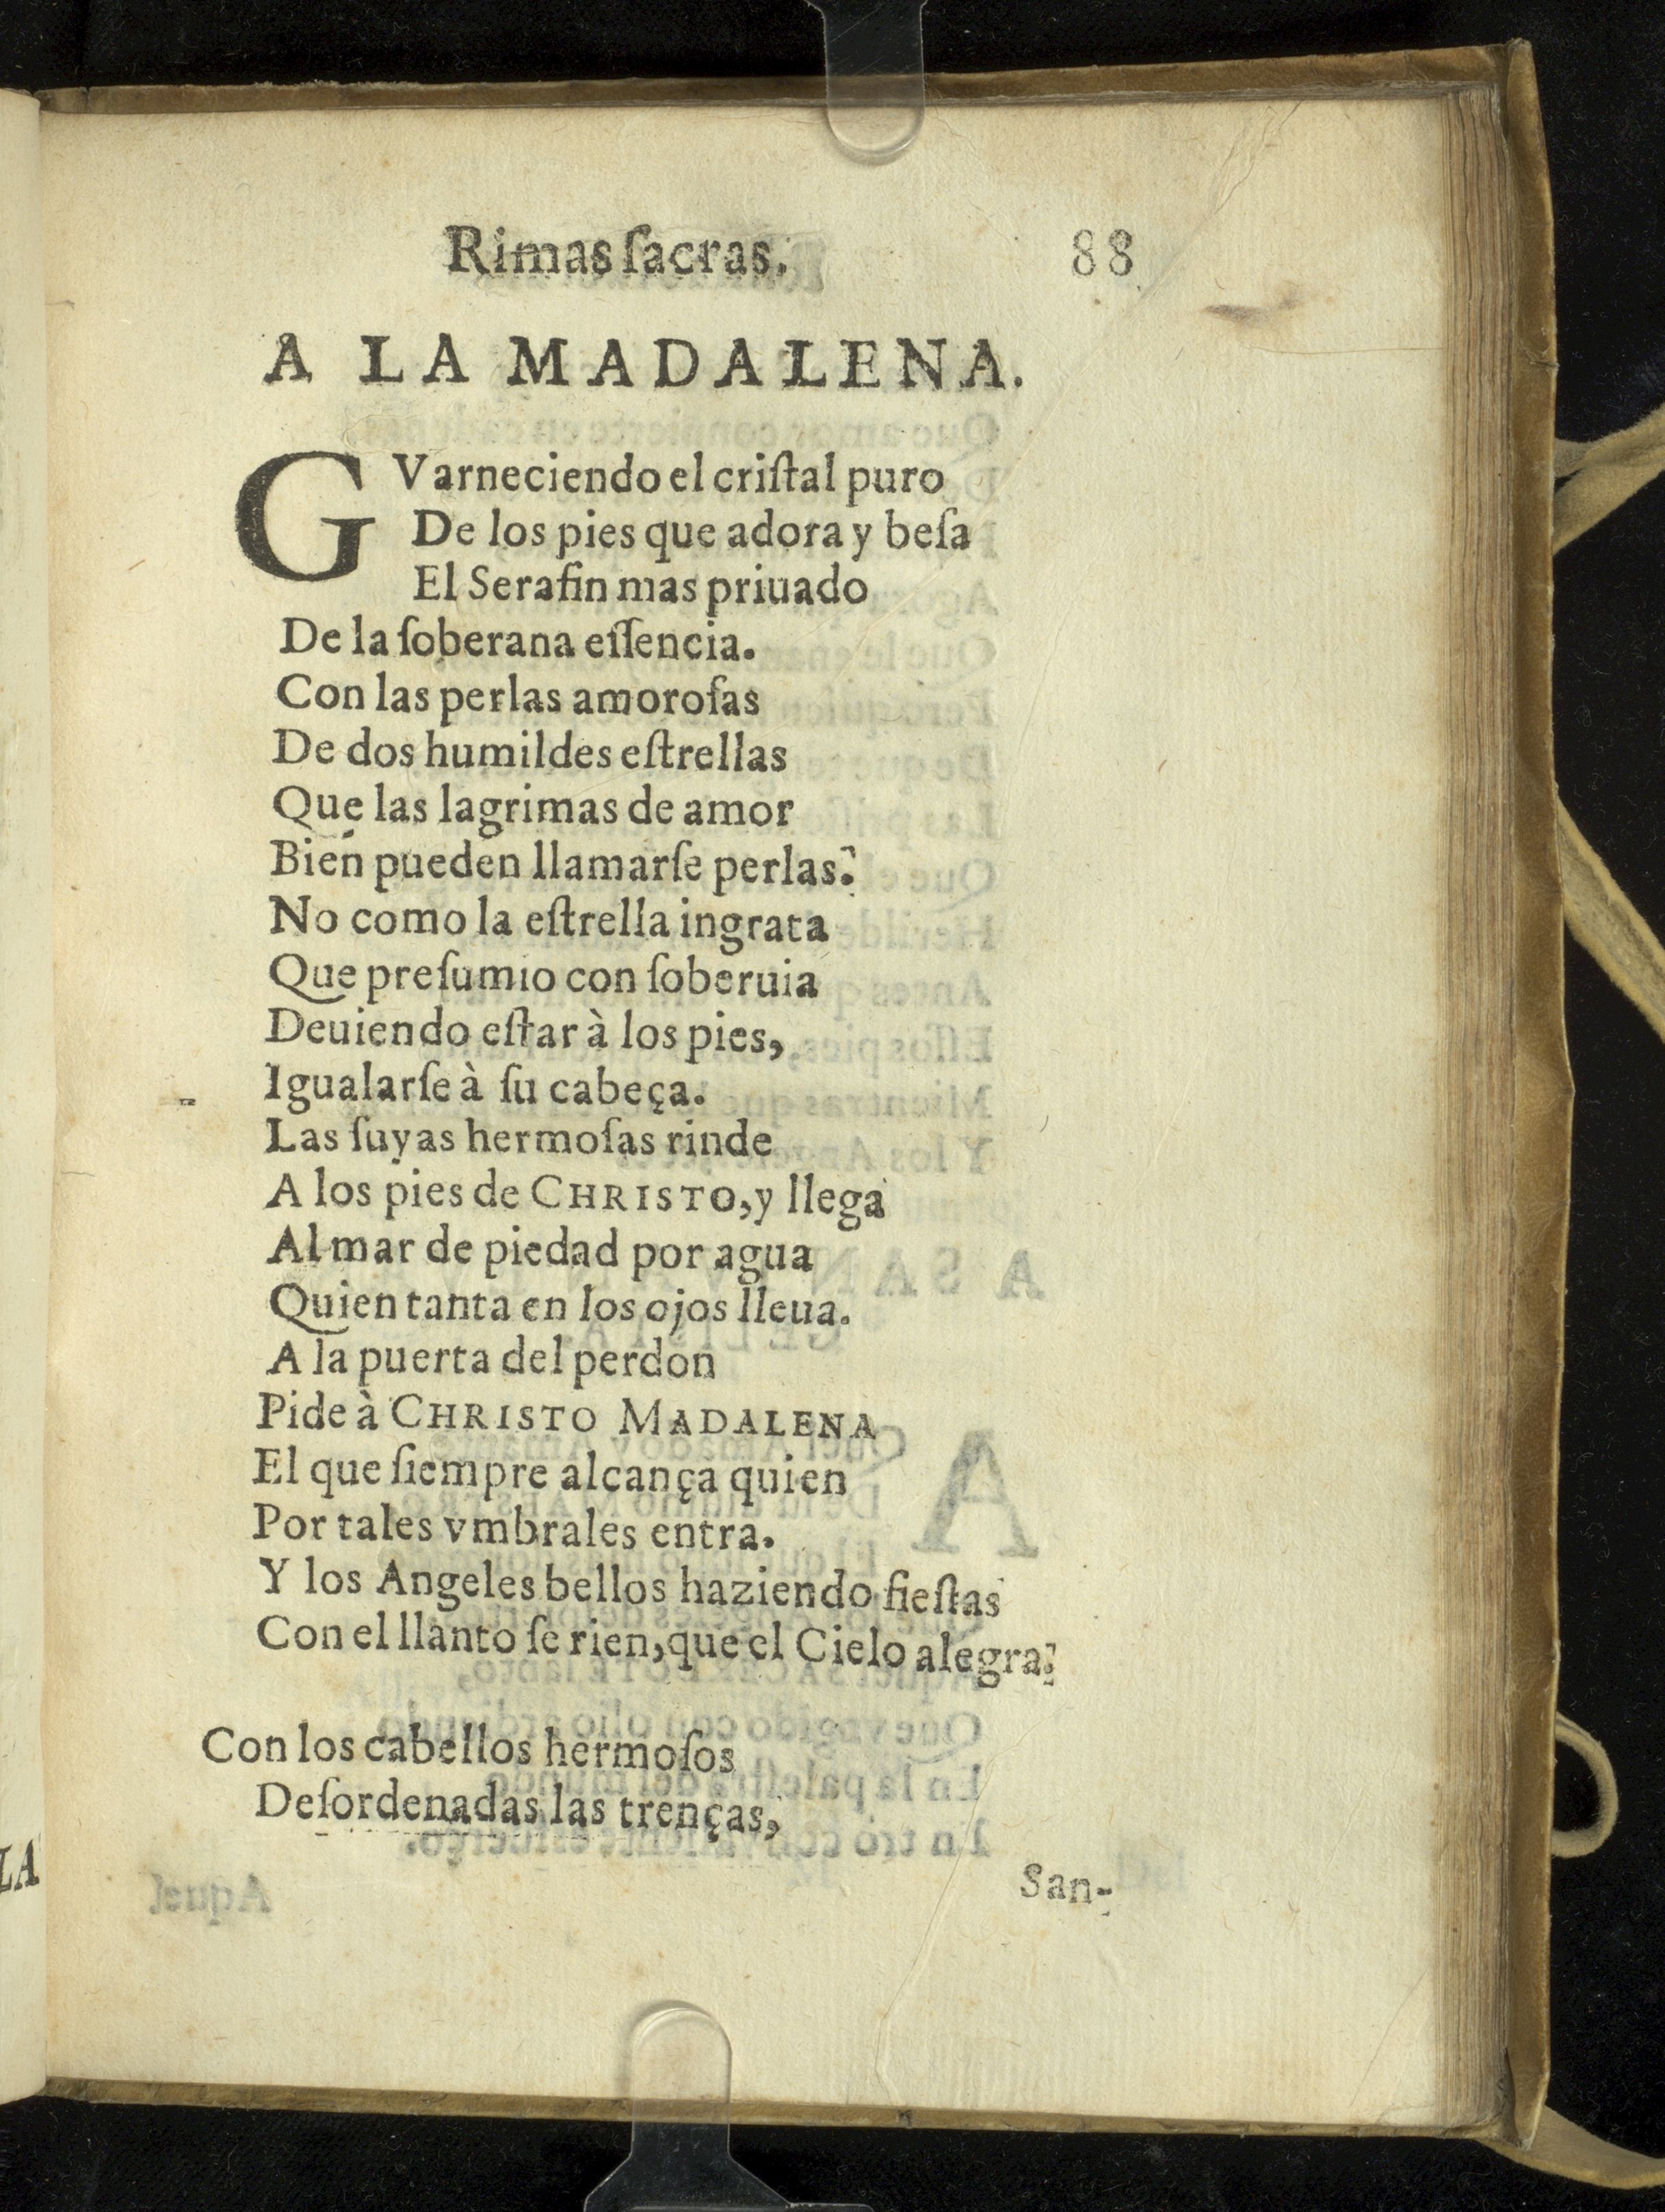 Rimas ſacras. 88
A LA MADALENA.
GVarneciendo el criſtal puro
De los pies que adora y beſa
El Serafin mas priuado
De la ſoberana eſſencia.
Con las perlas amoroſas
De dos humildes eſtrellas
Que las lagrimas de amor
Bien pueden llamarſe perlas.
No como la eſtrella ingrata
Que preſumio con ſoberuia
Deuiendo eſtar à los pies,
Igualarſe à ſu cabeça.
Las ſuyas hermoſas rinde
A los pies de CHRISTO, y llega
Al mar de piedad por agua
Quien tanta en los ojos lleua.
A la puerta del perdon
Pide à CHRISTO MADALENA
El que ſiempre alcança quien
Por tales vmbrales entra.
Y los Angeles bellos haziendo fieſtas
Con el llanto ſe rien, que el Cielo alegra.
Con los cabellos hermoſos
Deſordenadas las trenças,
San-
LA